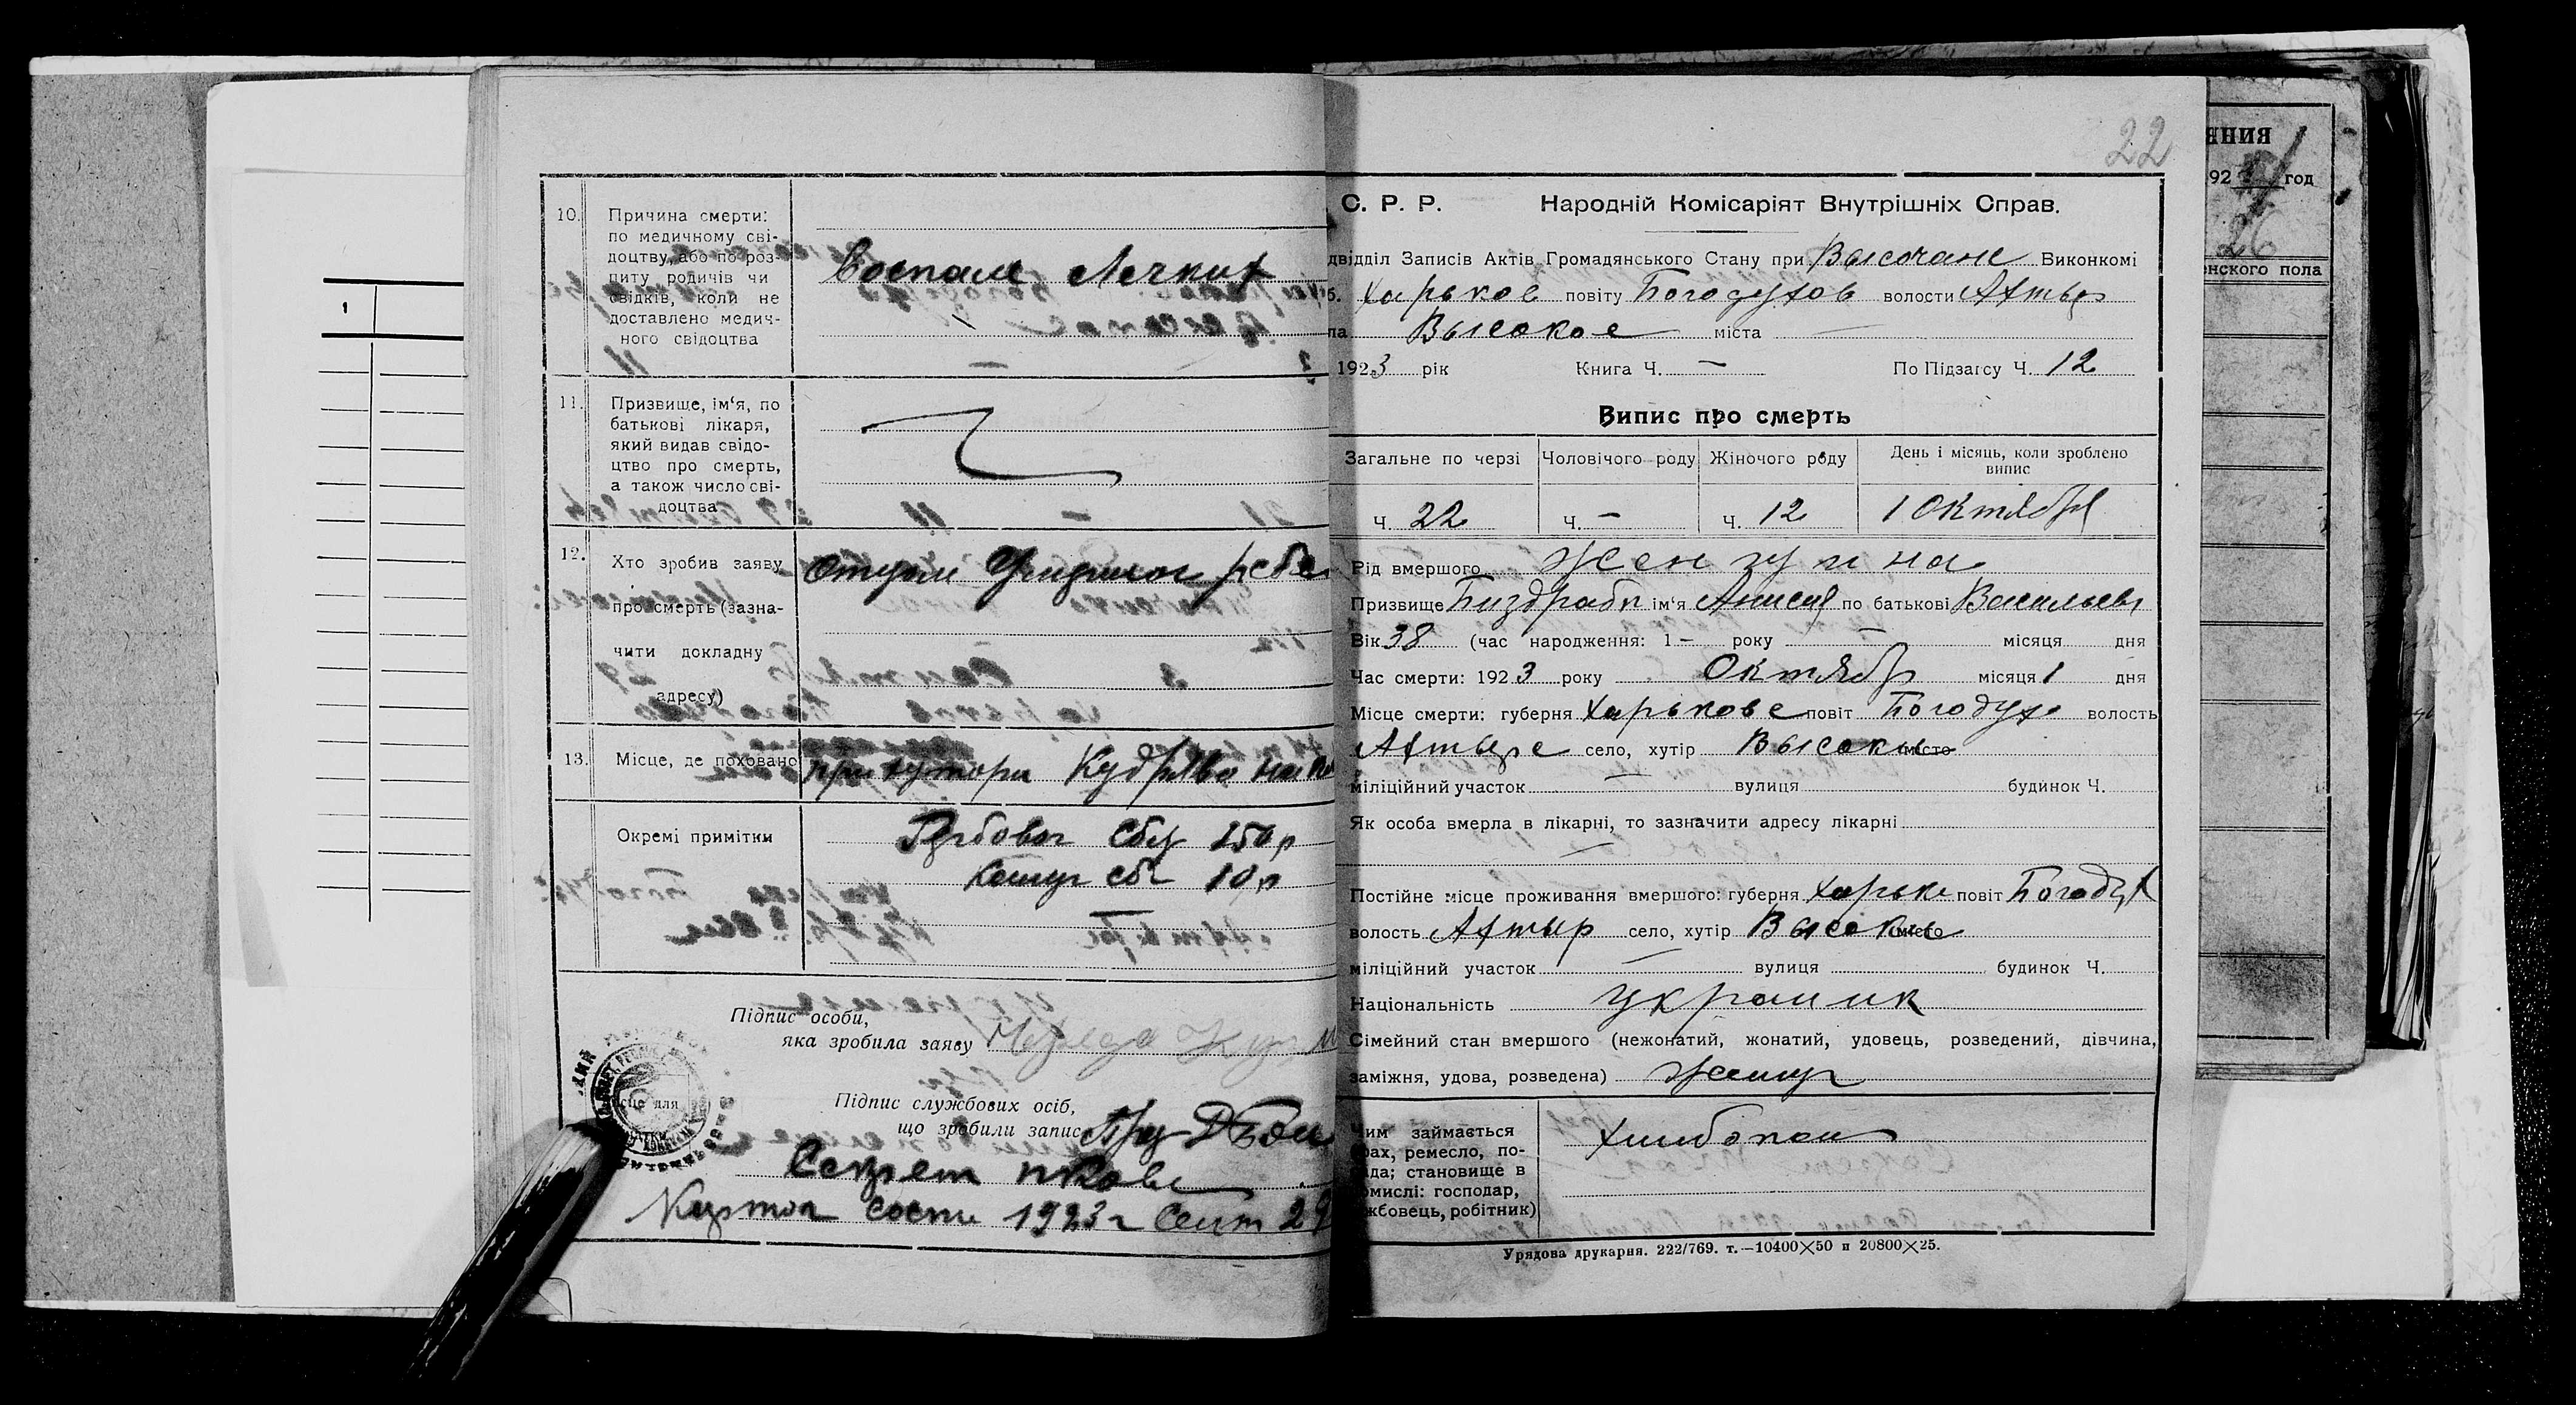 10. Причина смерти:
по медичному сві-
доцтву, або по роз-
питу родичів чи
свідків, коли не
доставлено медич-
ного свідоцтва
Воспале Легких
11. Призвище, ім‘я, по
батькові лікаря,
який видав свідо-
цтво про смерть,
а також число сві-
доцтва
12. Хто зробив заяву
про смерть (зазна-
чити докладну
адресу)
Отцом
13. Місце, де поховано
при хутори Кудряво
Окремі примітки
Гербовог сбор 250 р
Канц сб 10 р
Підпис особи,
яка зробила заяву
Підпис службових осіб,
що зробили запис
Секрет
1923 г Сент 29
22
С. Р. Р. Народній Комісаріят Внутрішніх Справ.
двідділ Записів Актів Громадянського Стану при Высочане Виконкомі
б. Харьков повіту Богодухов волости Ахтыр
ла Высокое міста
1923 рік Книга Ч. — По Підзагсу Ч. 12
Випис про смерть
Загальне по черзі Чоловічого роду Жіночого роду День і місяць, коли зроблено випис
Ч. 22 Ч. — Ч. 12 1 Октября
Рід вмершого женщина
Призвище ім‘я Анисия по батькові Васильев
Вік 38 (час народження: 1 — року — місяця дня
Час смерти: 1923 року Октябр місяця 1 дня
Місце смерти: губерня Харькове повіт Богодух волость
Ахтыре село, хутір Высоки місто
міліційний участок — вулиця будинок Ч.
Як особа вмерла в лікарні, то зазначити адресу лікарні
Постійне місце проживання вмершого: губерня Харьк повіт Богодух
волость Ахтыр село, хутір Высокие місто
міліційний участок — вулиця будинок Ч.
Національність украинк
Сімейний стан вмершого (нежонатий, жонатий, удовець, розведений, дівчина,
заміжня, удова, розведена)
Чим займається
фах, ремесло, по-
ада; становище в
омислі: господар,
жбовець, робітник)
хлебопаш
Урядова друкарня. 222/769. т.—10400×50 п 20800×25.
яния
192 год
26
енского пола
1